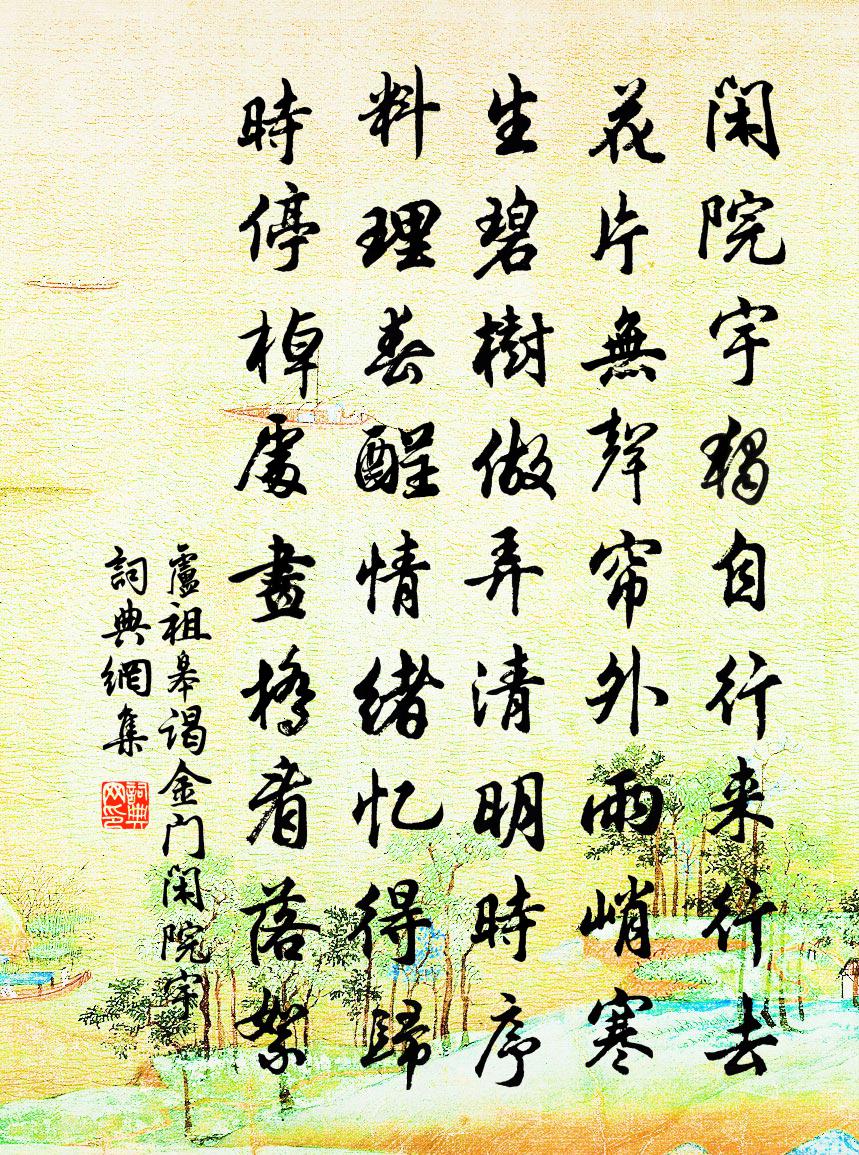 闲院宇獨自行来行去
花片無聲帘外雨峭寒
生碧樹做弄清明時序
料理春酲情緒忆得歸
時停棹處畫橋看落絮
盧祖皋谒金门闲院宇
詞典網集
詞典网印